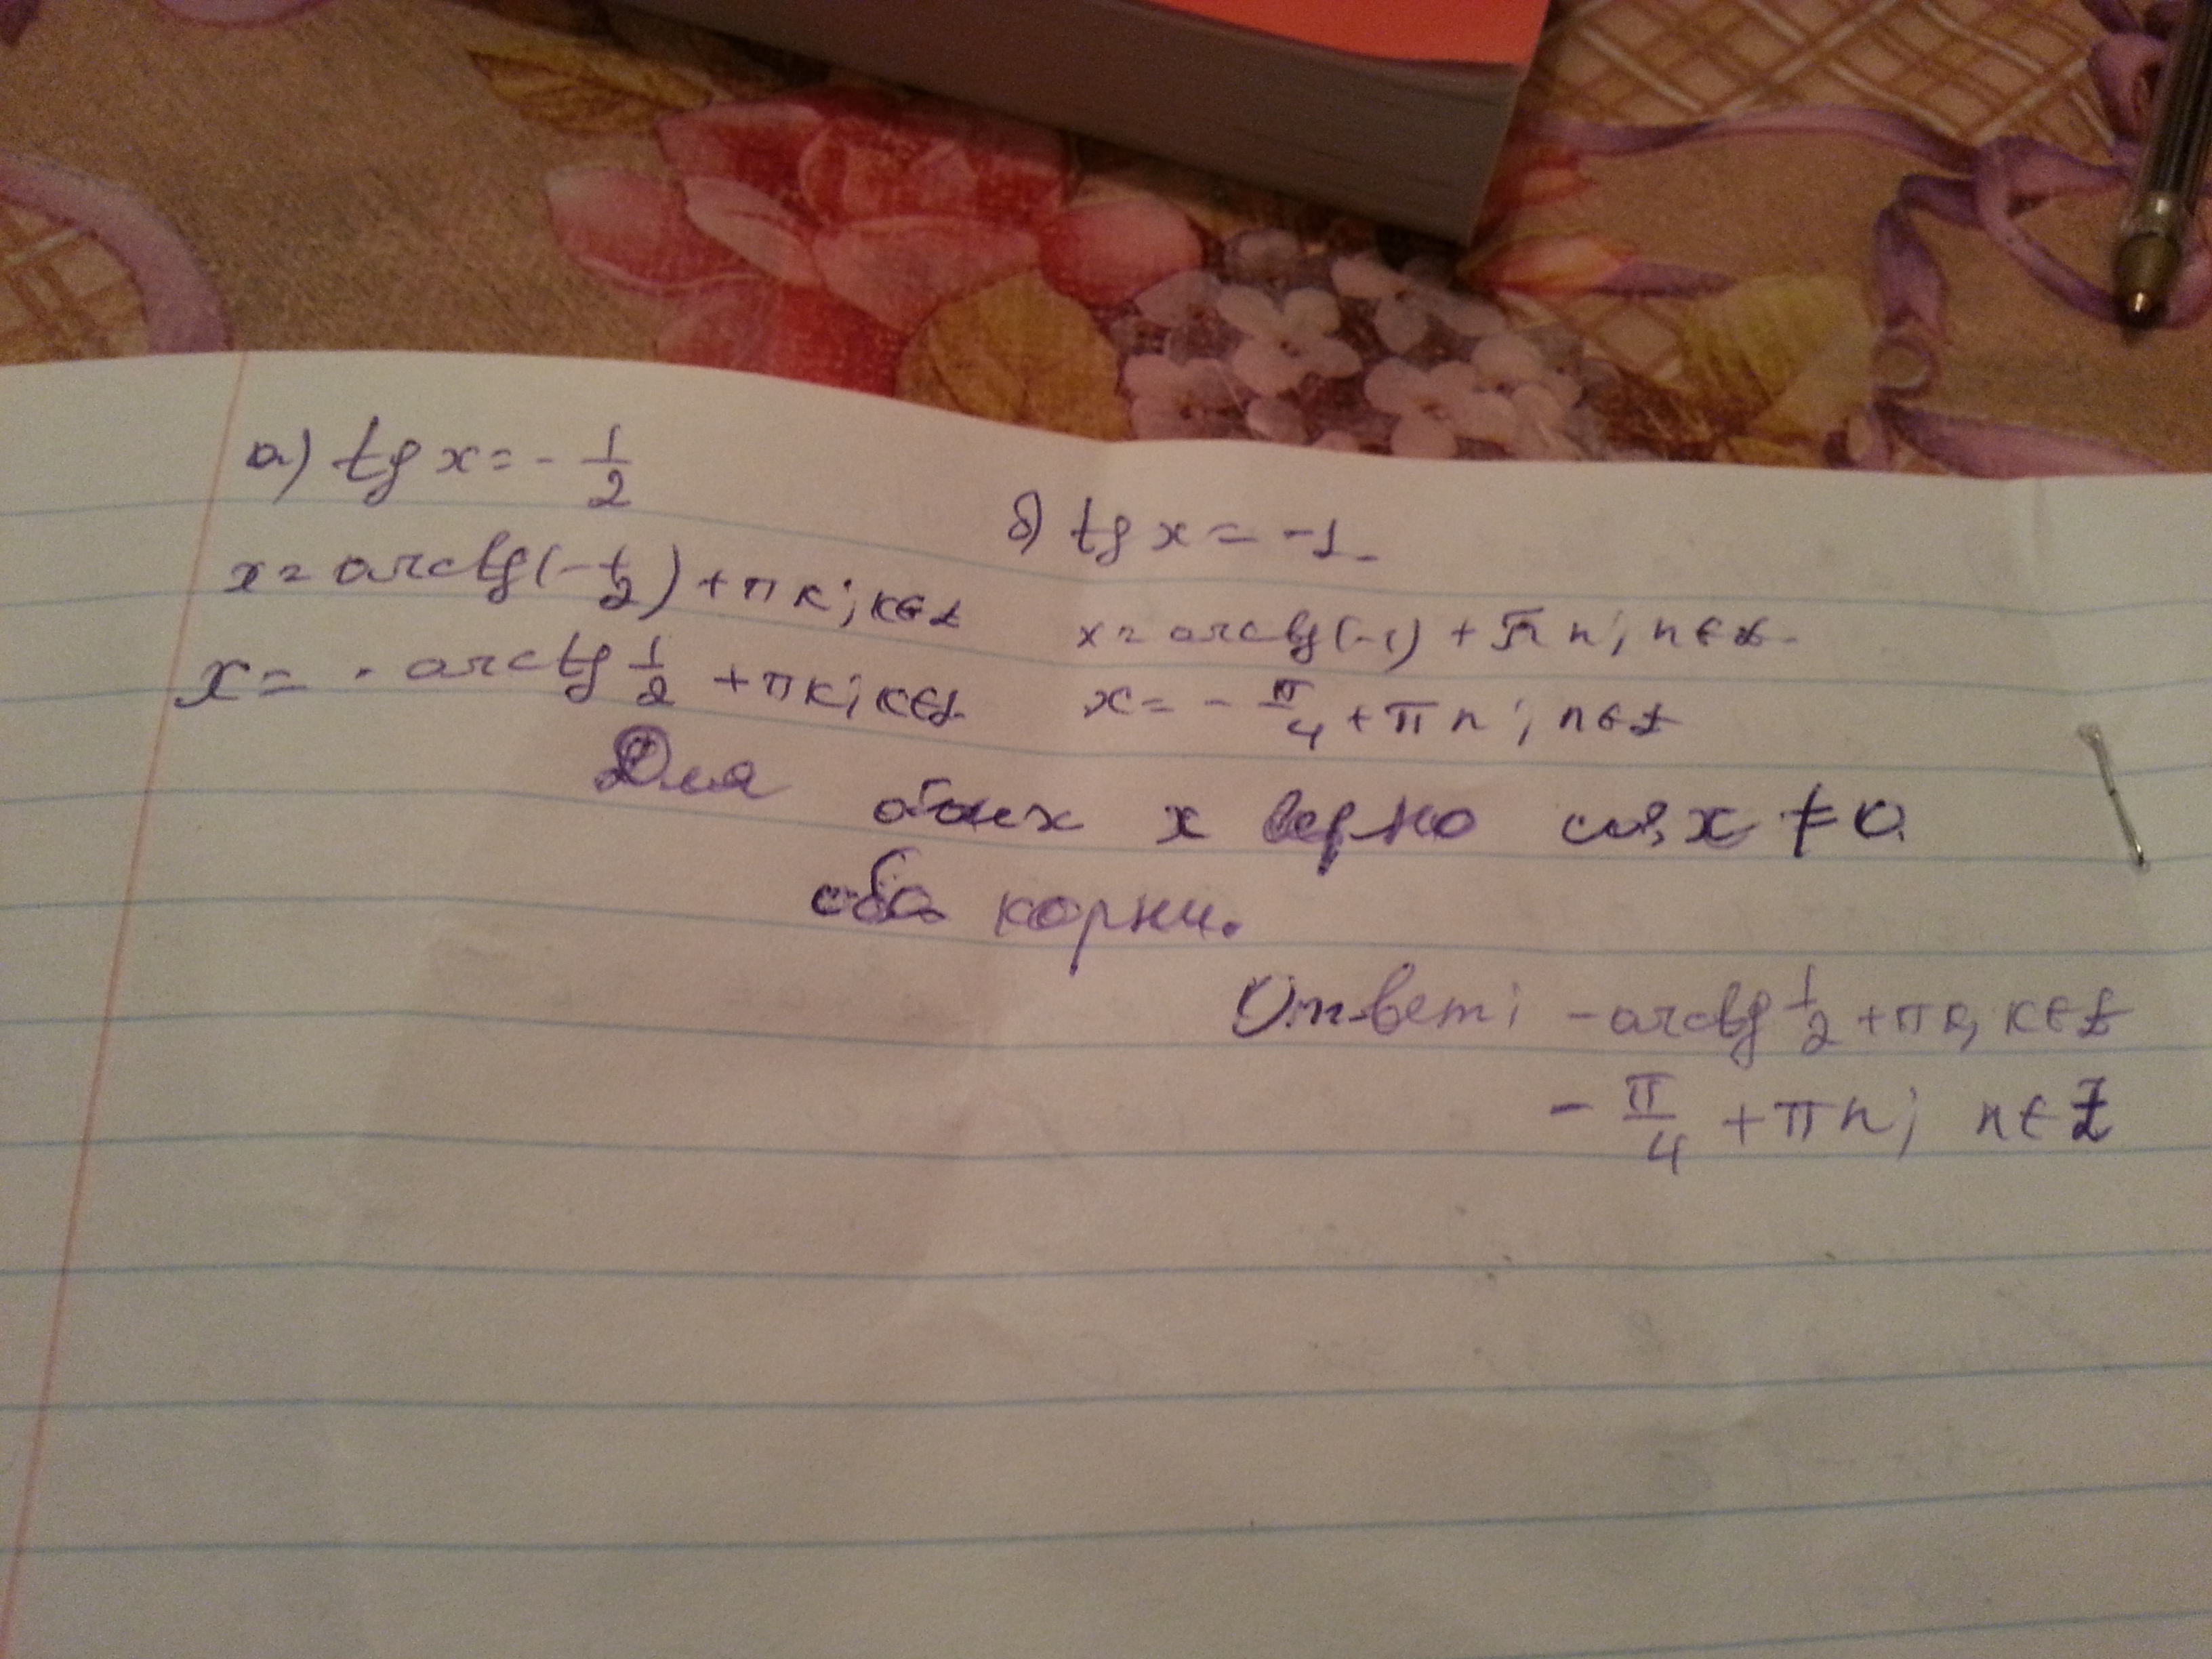 а) tg x = - 1/2
x = arctg(-1/2) + πк; к∈Z
x = - arctg 1/2 + πк; к∈Z
б) tg x = -1
x = arctg(-1) + πn; n∈Z
x = - π/4 + πn; n∈Z
Для обоих x верно cos x ≠ 0.
оба корни.
Ответ: - arctg 1/2 + πк, к∈Z
- π/4 + πn; n∈Z